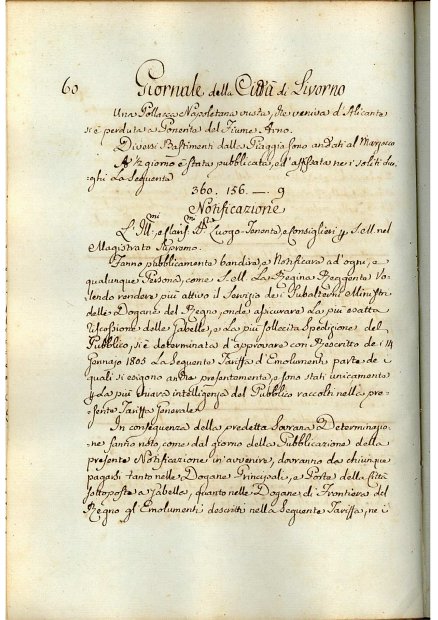 60 Giornale della Città di Livorno
Una Pollacca Napoletana vuota, che veniva d'Alicante
si è perduta a Ponente del Fiume Arno.
Diversi Bastimenti dalla Piaggia sono andati al Marzocco
A ½ giorno è stata pubblicata, ed affissata nei soliti luo
ghi La Seguente
360. 156. — 9
Notificazione
L'Ill.mi, e Clariss.mi SS.ri Luogo-Tenente, e Consiglieri p. S. M. nel
Magistrato Supremo.
Fanno pubblicamente bandire, e Notificare ad ogni, e
qualunque Persona, come S. M. La Regina Reggente Vo-
lendo rendere più attivo il Servizio de' Subalterni Ministri
delle Dogane del Regno, onde assicurare La più esatta
Riscossione delle Gabelle, e La più sollecita Spedizione del
Pubblico, si è determinata d'approvare con Rescritto de' 14
Gennajo 1805 La Seguente Tariffa d'Emolumenti parte de
quali si esigono anche presentemente, e sono stati unicamente
p La più chiara intelligenza del Pubblico raccolti nella pre
sente Tariffa Generale.
In consequenza della predetta Sovrana Determinazio-
ne fanno noto, come dal giorno della Pubblicazione della
presente Notificazione in avvenire, dovranno da chiunque
pagarsi tanto nelle Dogane Principali, e Porte della Città
sottoposte a Gabella, quanto nelle Dogane di Frontiera del
Regno gl Emolumenti descritti nella Seguente Tariffa, ne i